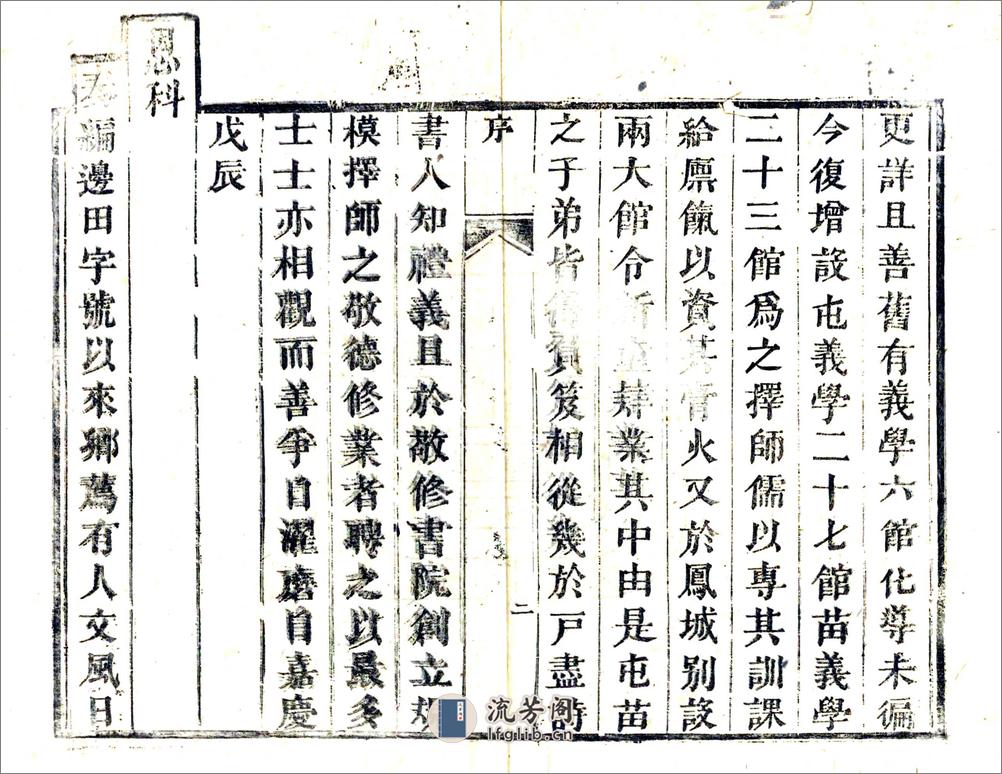 更詳且善舊有義學六館化導未徧
今復增設屯義學二十七館苗義學
二十三館爲之擇師儒以專其訓課
給廪餼以資其膏火又於鳳城別設
兩大館令 肄業其中由是屯苗
之子弟皆 負笈相從幾於戸盡詩
序
二
書人知禮義且於敬修書院創立規
模擇師之敬德修業者聘之以最多
士士亦相觀而善爭自濯磨自嘉慶
戊辰
恩科
編邊田字號以來鄉薦有人文風日
流芳阁
lfglib.cn